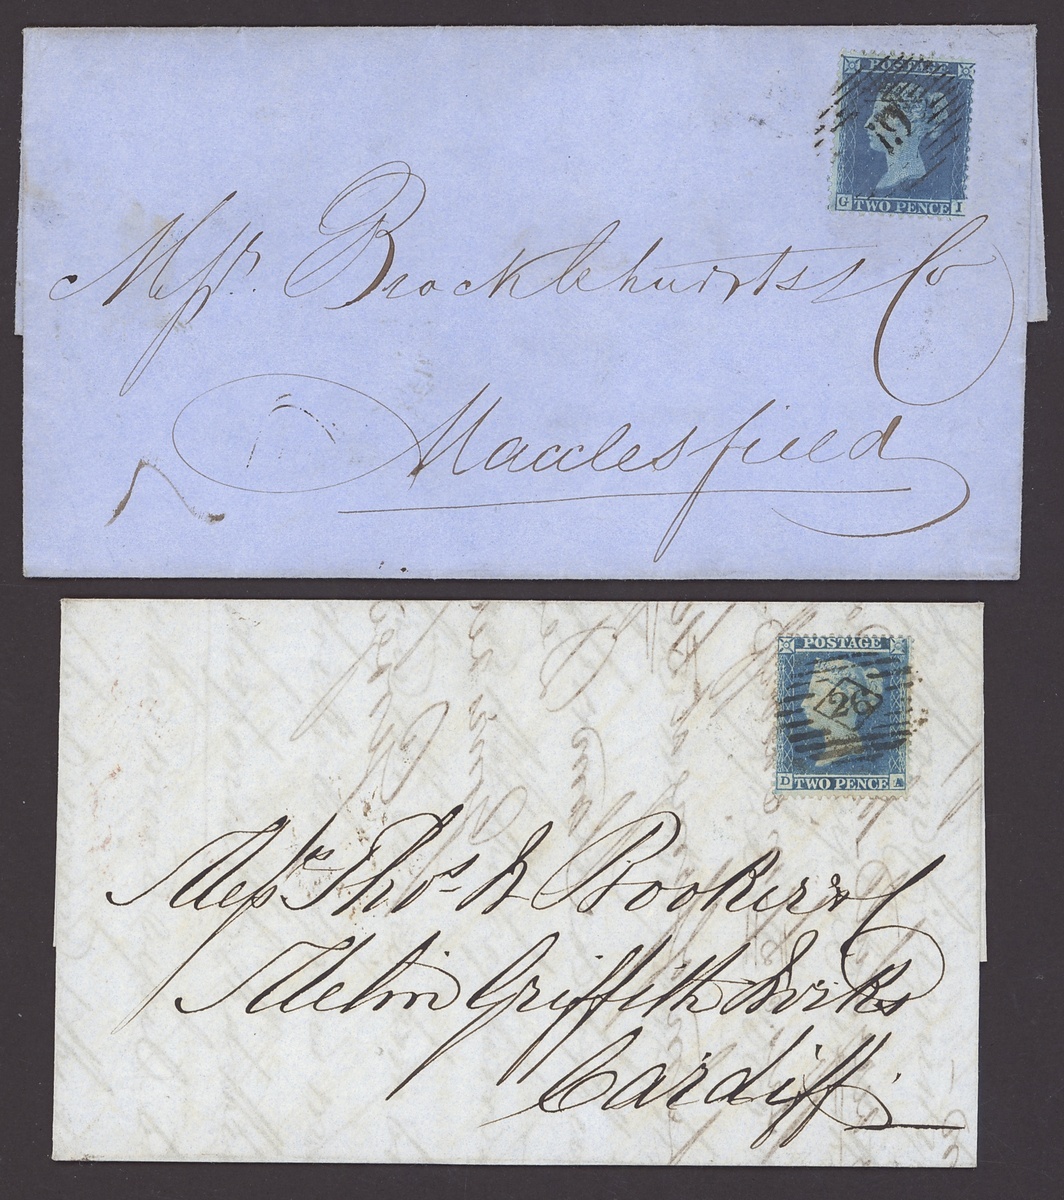 POSTAGE
TWO PENCE
G I
Messrs. Brocklehursts & Co
Macclesfield
POSTAGE
26
D TWO PENCE A
Messrs Thos W Booker & C
Melin Griffith Works
Cardiff